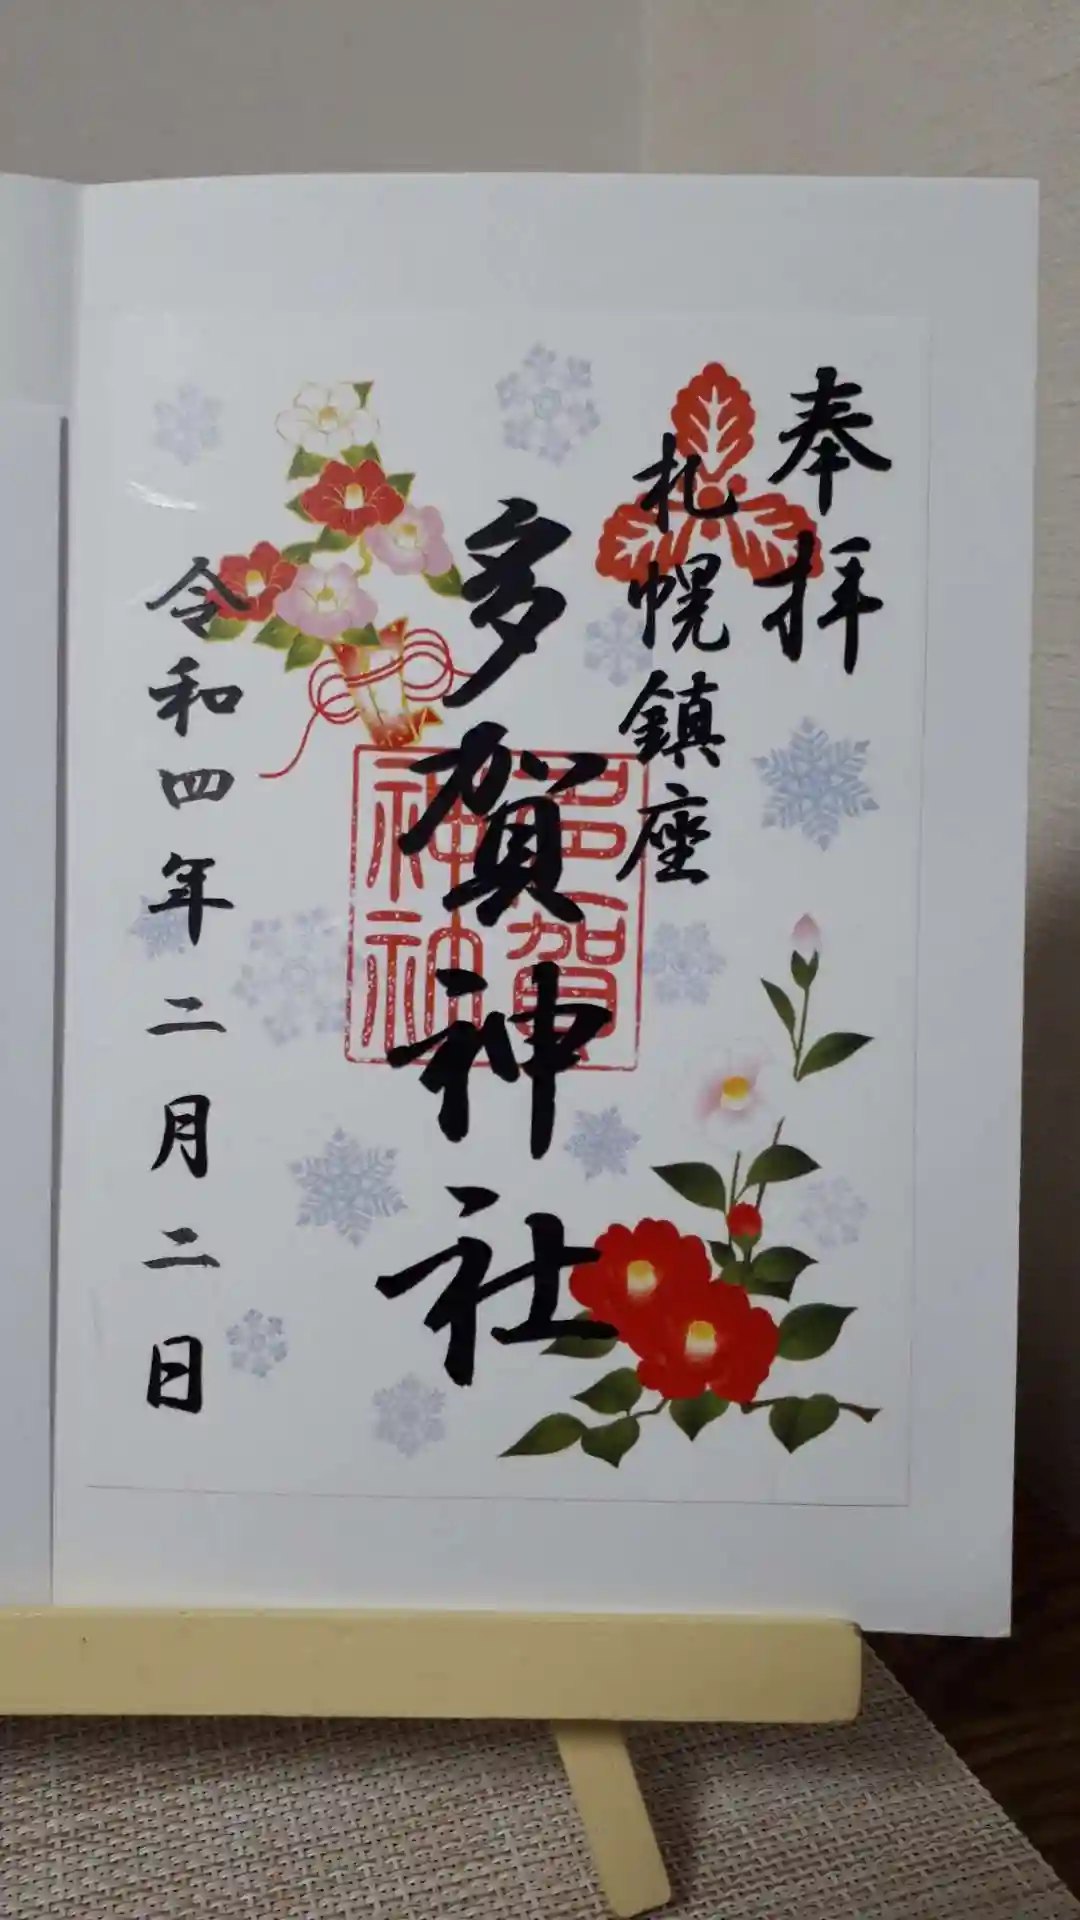 奉拝
札幌鎮座
多賀神社
多賀
神神
令和四年二月二日